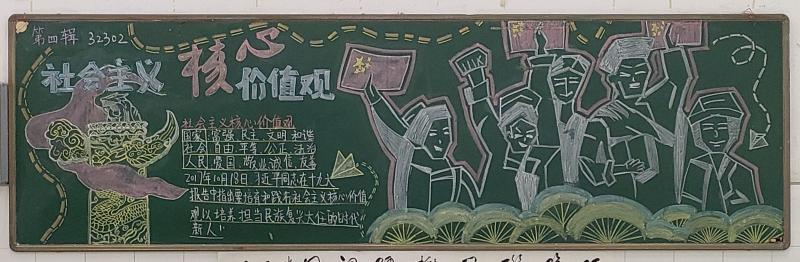 第四辑 32302
社会主义 核心价值观
社会主义核心价值观
国家 富强 民主 文明 和谐
社会 自由 平等 公正 法治
人民 爱国 敬业 诚信 友善
2017年10月18日 习近平同志在十九大
报告中指出要培育和践行社会主义核心价值
观以培养担当民族复兴大任的时代
新人!